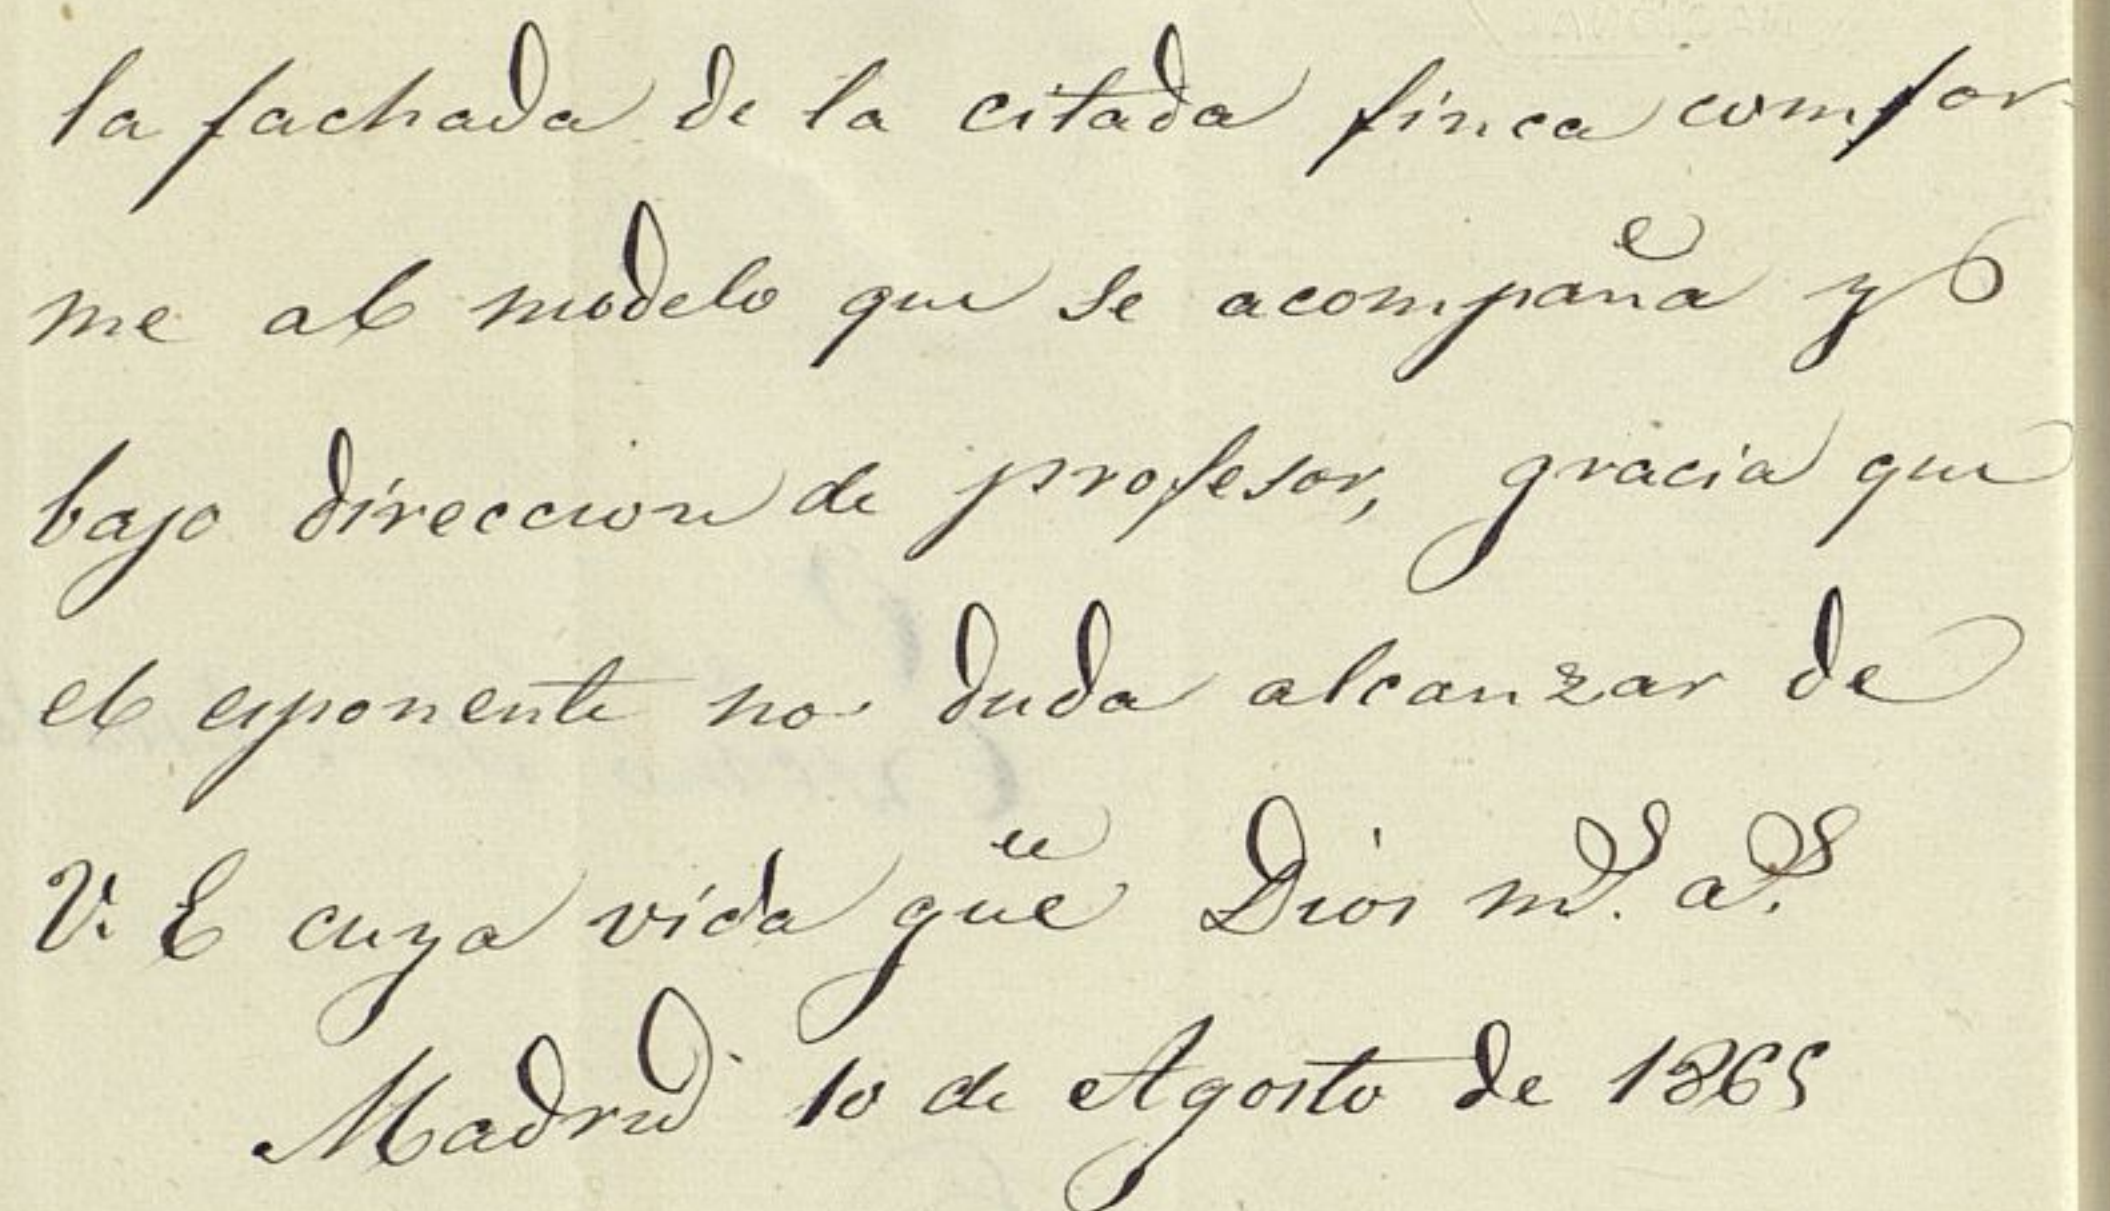 la fachada de la citada finca comfor
me al modelo que se acompaña y
bajo direccion de profesor, gracia que
el esponente no duda alcanzar de
V. E cuya vida güe Dios m.ˢ a.ˢ
Madrid 10 de Agosto de 1865